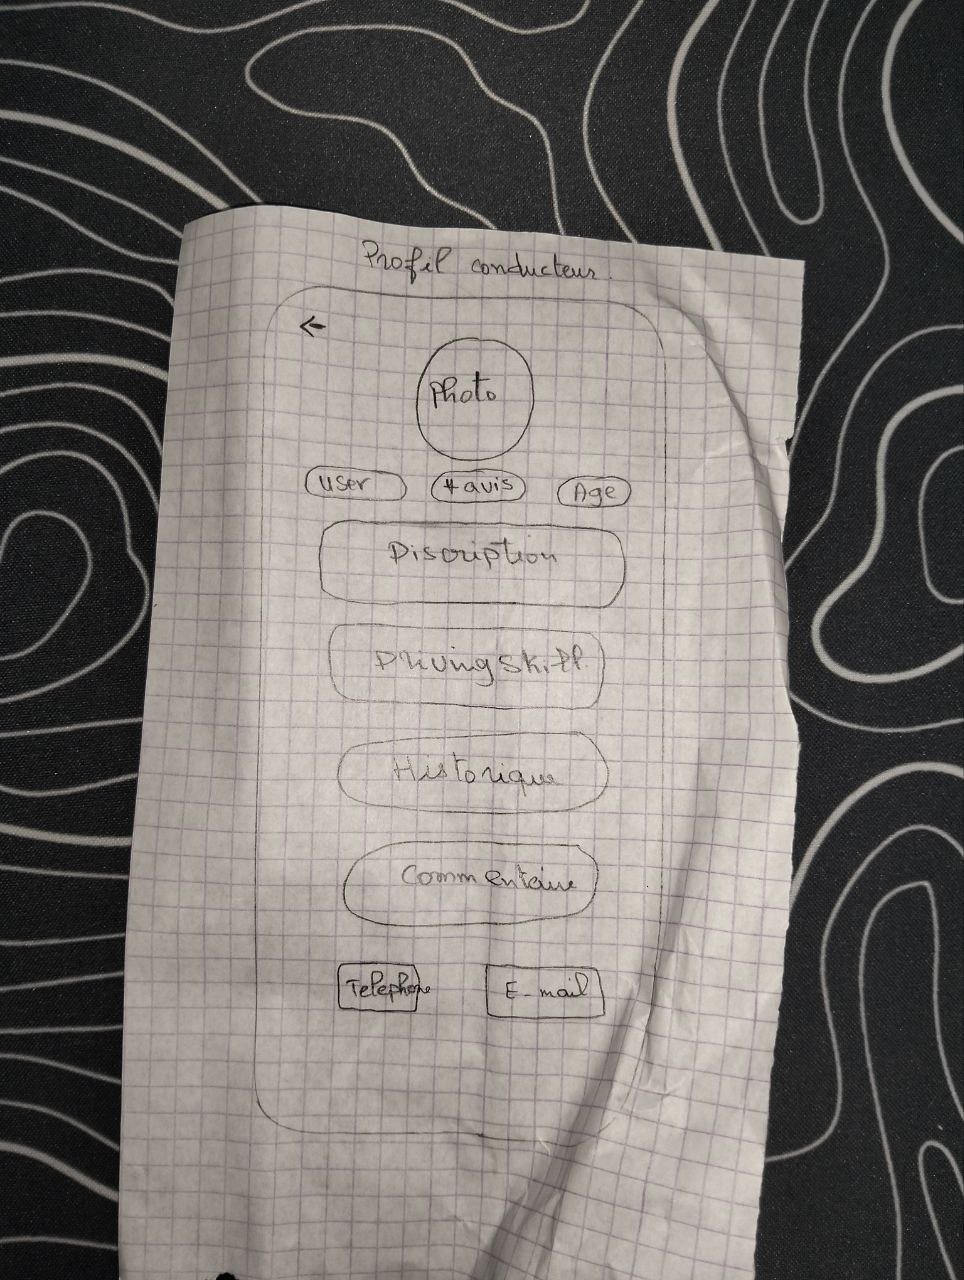 Profil conducteur.
←
Photo
User
# avis
Age
Discription
Driving Skill.
Historique
Commentaire
Telephone
E-mail